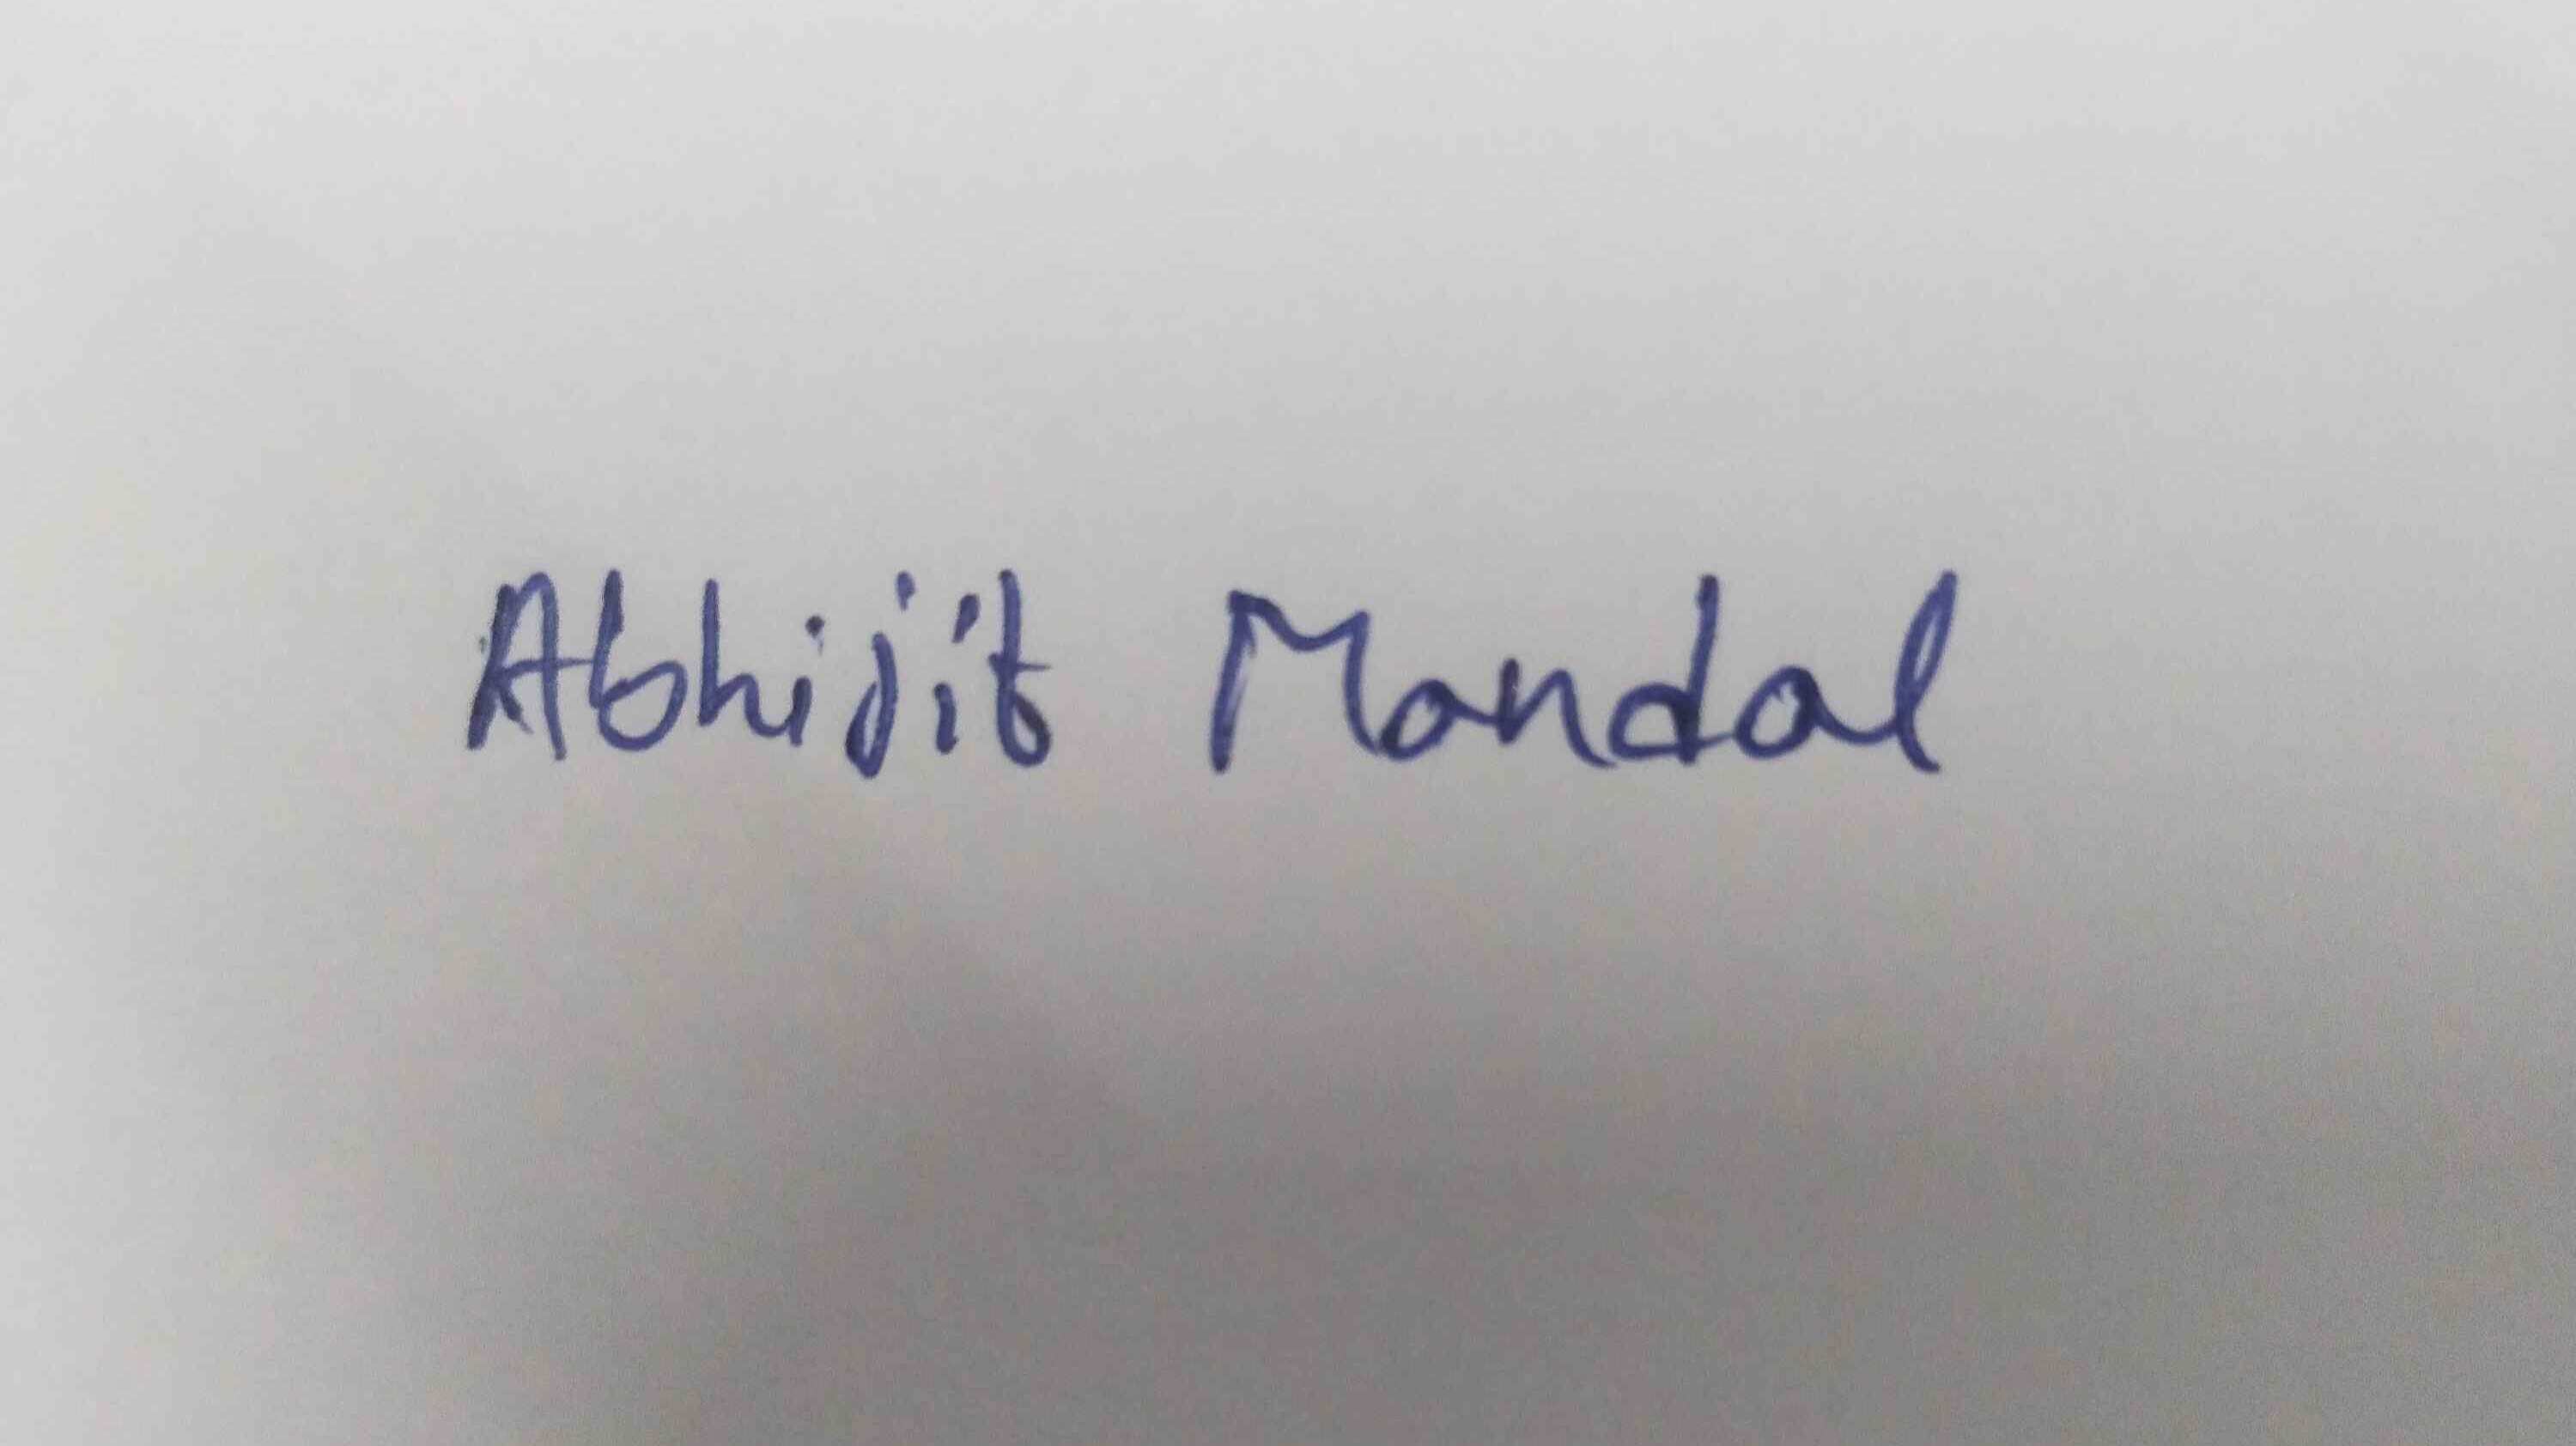 Abhijit Mondal